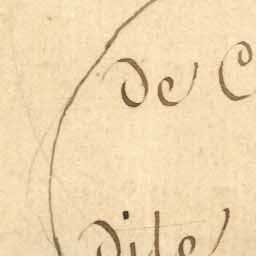 de C
dite